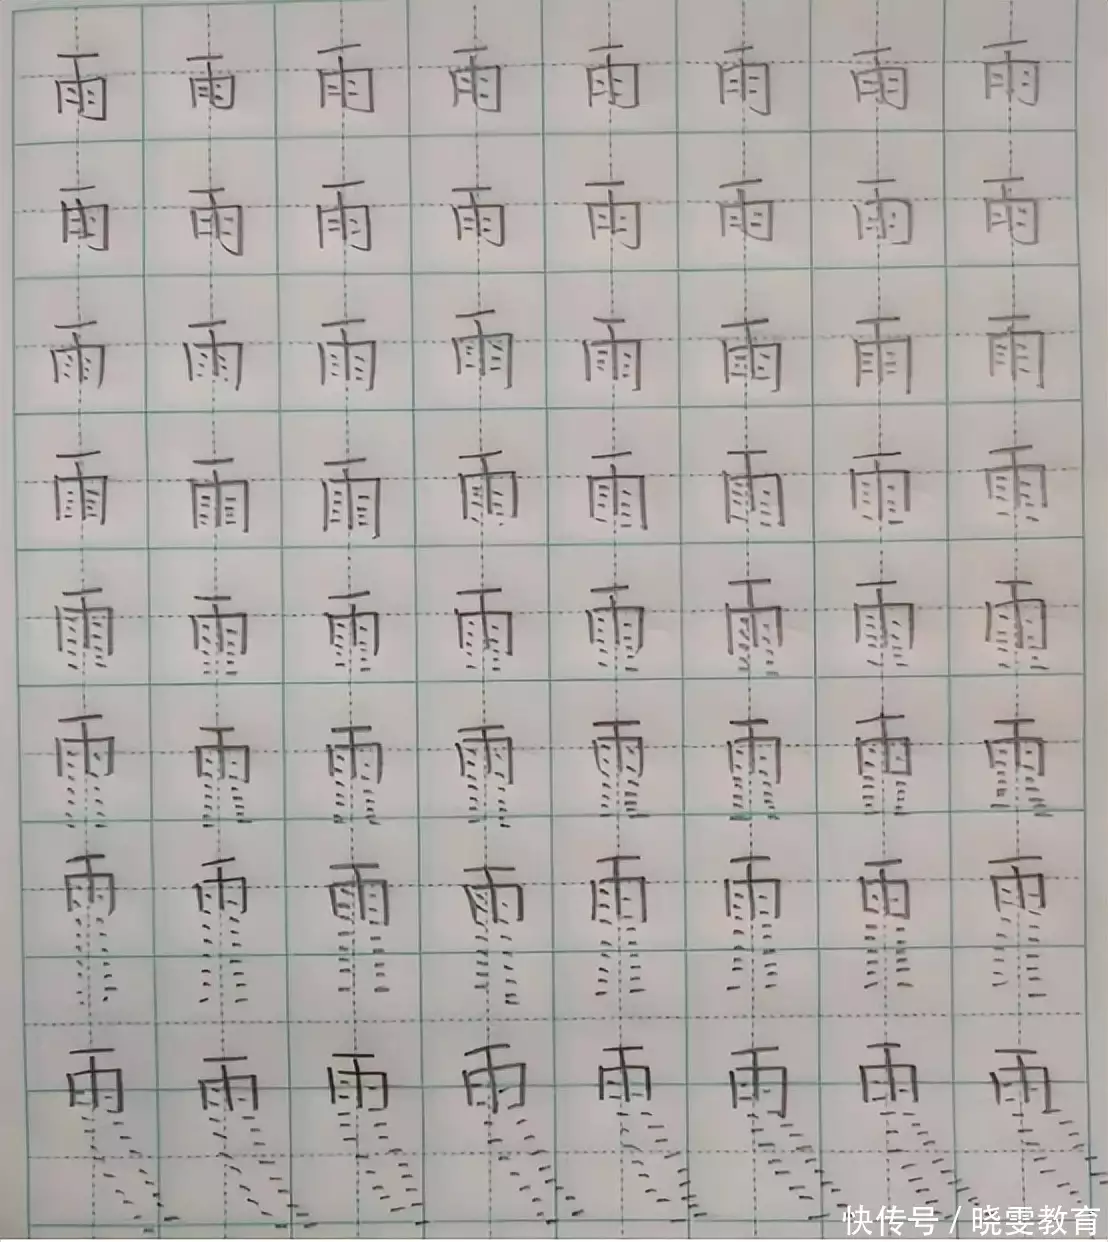 雨雨雨雨雨雨雨雨
雨雨雨雨雨雨雨雨
雨雨雨雨雨雨雨雨
雨雨雨雨雨雨雨雨
雨雨雨雨雨雨雨雨
雨雨雨雨雨雨雨雨
雨雨雨雨雨雨雨雨
雨雨雨雨雨雨雨雨
快传号/晓雯教育